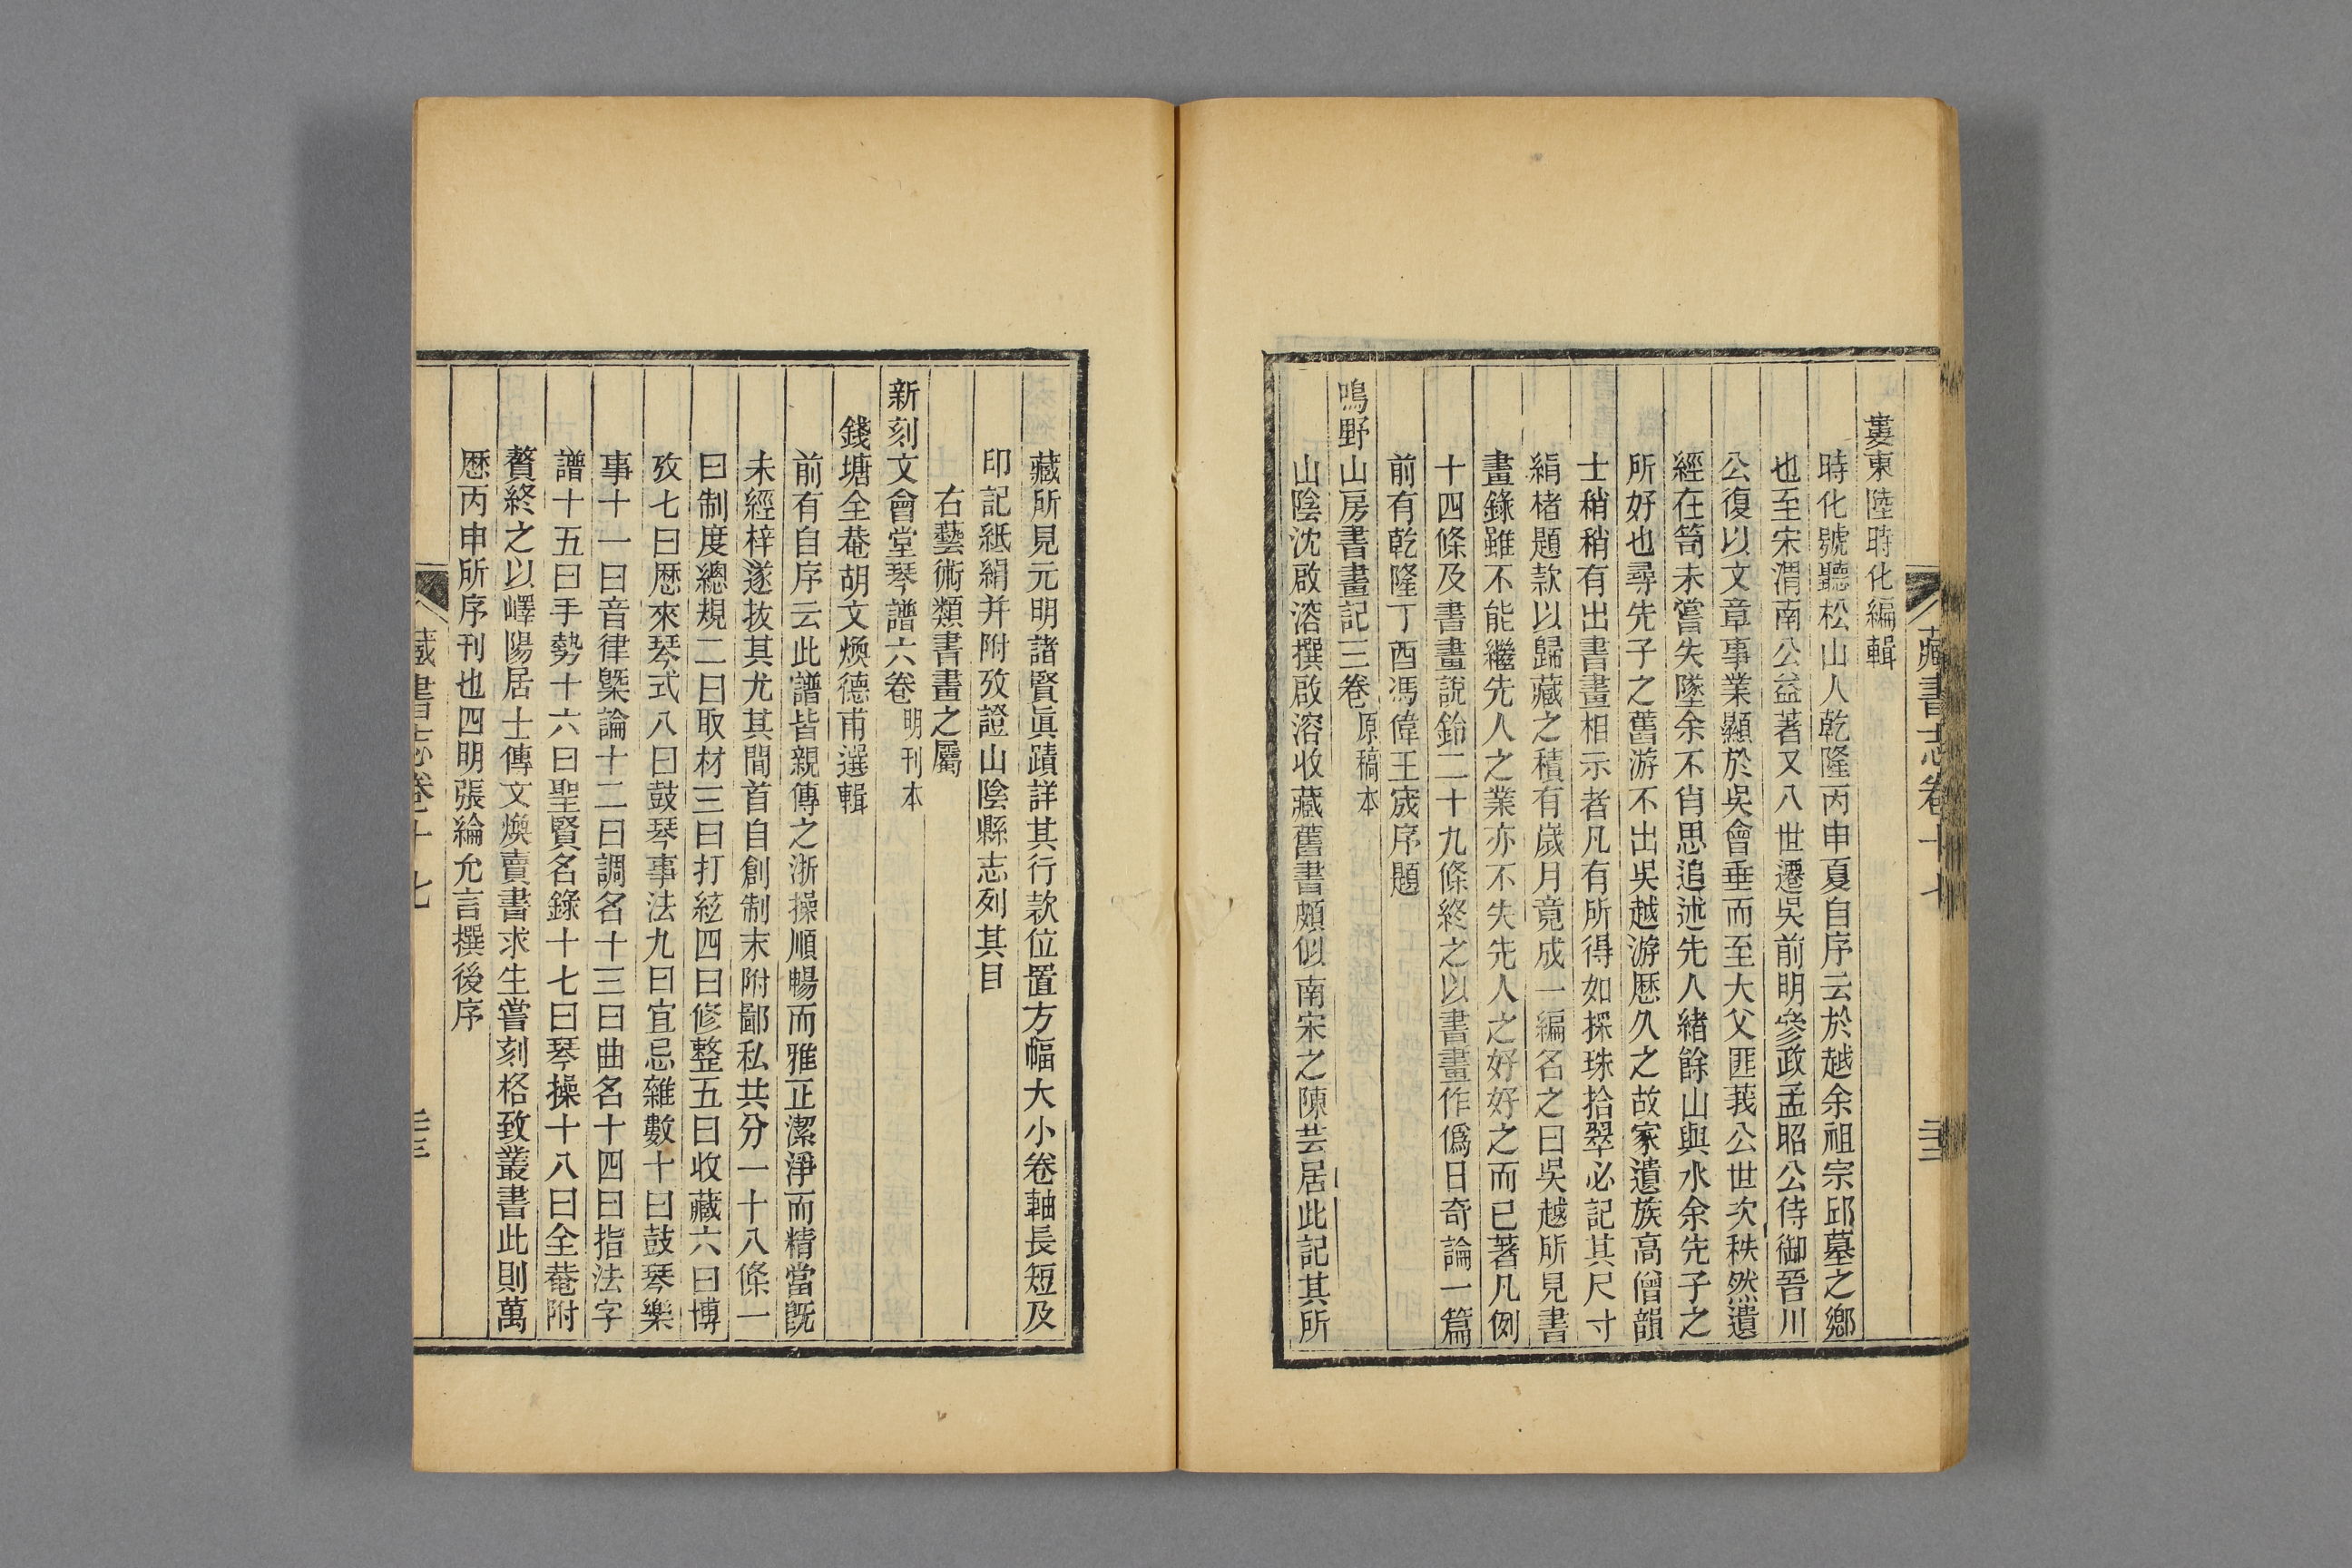 藏書志卷十七
二十二
婁東陸時化編輯
時化號聽松山人乾隆丙申夏自序云於越余祖宗邱墓之鄉
也至宋渭南公益著又八世遷吳前明參政孟昭公侍御晉川
公復以文章事業顯於吳會垂而至大父匪莪公世次秩然遺
經在笥未嘗失墜余不肖思追述先人緒餘山與水余先子之
所好也尋先子之舊游不出吳越游歷久之故家遺族高僧韻
士稍稍有出書畫相示者凡有所得如探珠拾翠必記其尺寸
絹楮題款以歸藏之積有歲月竟成一編名之曰吳越所見書
畫錄雖不能繼先人之業亦不失先人之好好之而已著凡例
十四條及書畫說鈐二十九條終之以書畫作僞日奇論一篇
前有乾隆丁酉馮偉王宬序題
鳴野山房書畫記三卷 原稿本
山陰沈啟溶撰啟溶收藏舊書頗似南宋之陳芸居此記其所
藏所見元明諸賢眞蹟詳其行款位置方幅大小卷軸長短及
印記紙絹并附攷證山陰縣志列其目
右藝術類書畫之屬
新刻文會堂琴譜六卷 明刊本
錢塘全菴胡文煥德甫選輯
前有自序云此譜皆親傳之浙操順暢而雅正潔淨而精當旣
未經梓遂拔其尤其間首自創制末附鄙私共分一十八條一
曰制度總規二曰取材三曰打絃四曰修整五曰收藏六曰博
攷七曰歷來琴式八曰鼓琴事法九曰宜忌雜數十曰鼓琴樂
事十一曰音律槩論十二曰調名十三曰曲名十四曰指法字
譜十五曰手勢十六曰聖賢名錄十七曰琴操十八曰全菴附
贅終之以嶧陽居士傳文煥賣書求生嘗刻格致叢書此則萬
歷丙申所序刊也四明張綸允言撰後序
藏書志卷十七
二十三